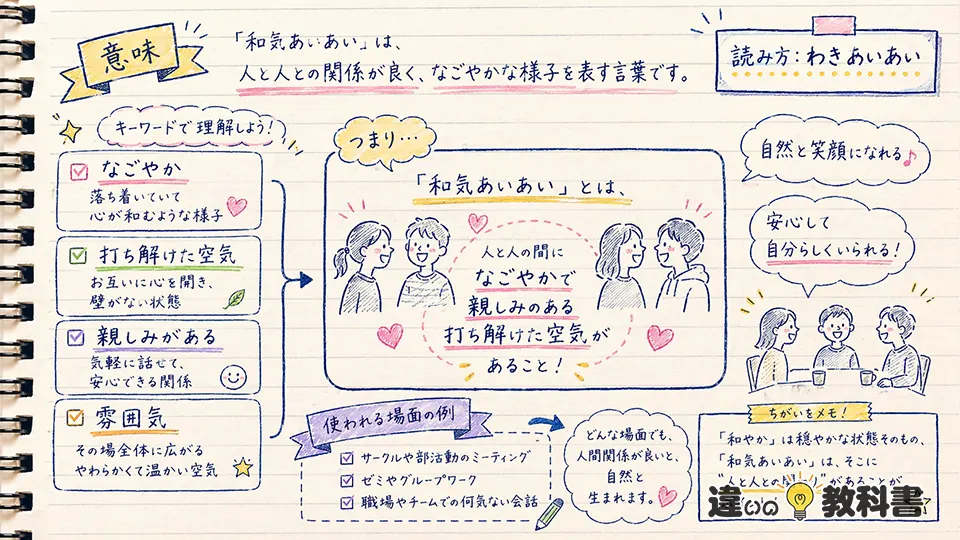 意味
「和気あいあい」は、
人と人との関係が良く、なごやかな様子を表す言葉です。
読み方：わきあいあい
キーワードで理解しよう！
なごやか
落ち着いていて
心が和むような様子
打ち解けた空気
お互いに心を開き、
壁がない状態
親しみがある
気軽に話せて、
安心できる関係
雰囲気
その場全体に広がる
やわらかくて温かい空気
つまり…
「和気あいあい」とは、
人と人の間に
なごやかで
親しみのある
打ち解けた空気が
あること！
自然と笑顔になれる♪
安心して
自分らしくいられる！
使われる場面の例
サークルや部活動のミーティング
ゼミやグループワーク
職場やチームでの何気ない会話
どんな場面でも、
人間関係が良いと、
自然と
生まれます。
ちがいをメモ！
「和やか」は穏やかな状態そのもの、
「和気あいあい」は、そこに
"人と人との
があることが
違いの教科書